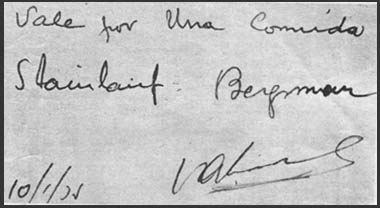 Vale por Una Comida
Stainlauf - Bergman
10/1/75